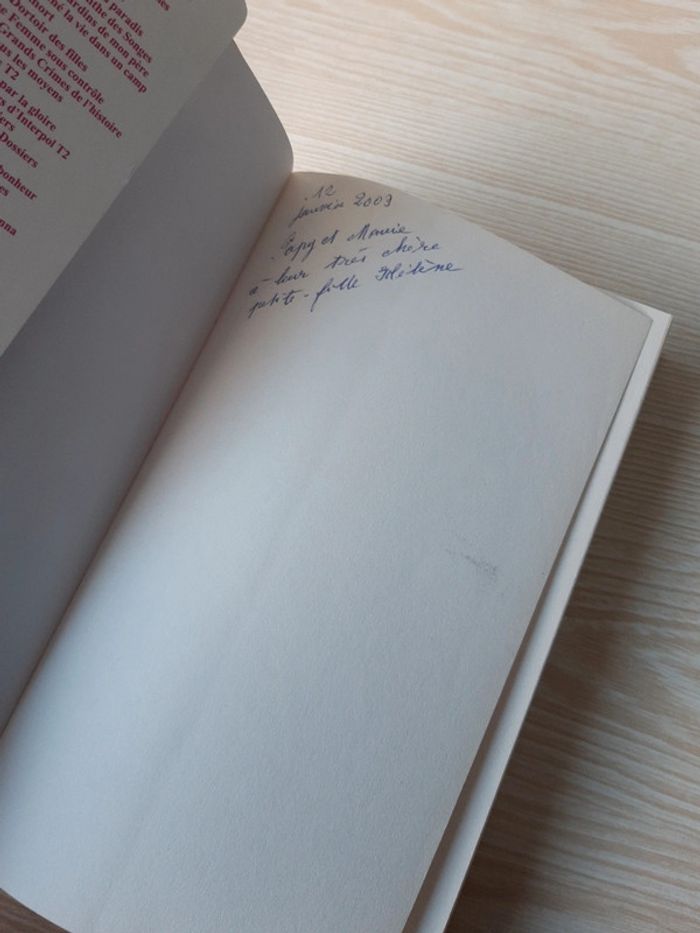 paradis
nthe des Songes
ardins de mon père
né la vie dans un camp
nhort
Dortoir des filles
Femme sous contrôle
Grands Crimes de l'histoire
us les moyens
T2
par la gloire
rs d'Interpol T2
iers
Dossiers
bonheur
es
nna
12
Janvier 2009
Papy et Mamie
à leur très chère
petite-fille Hélène